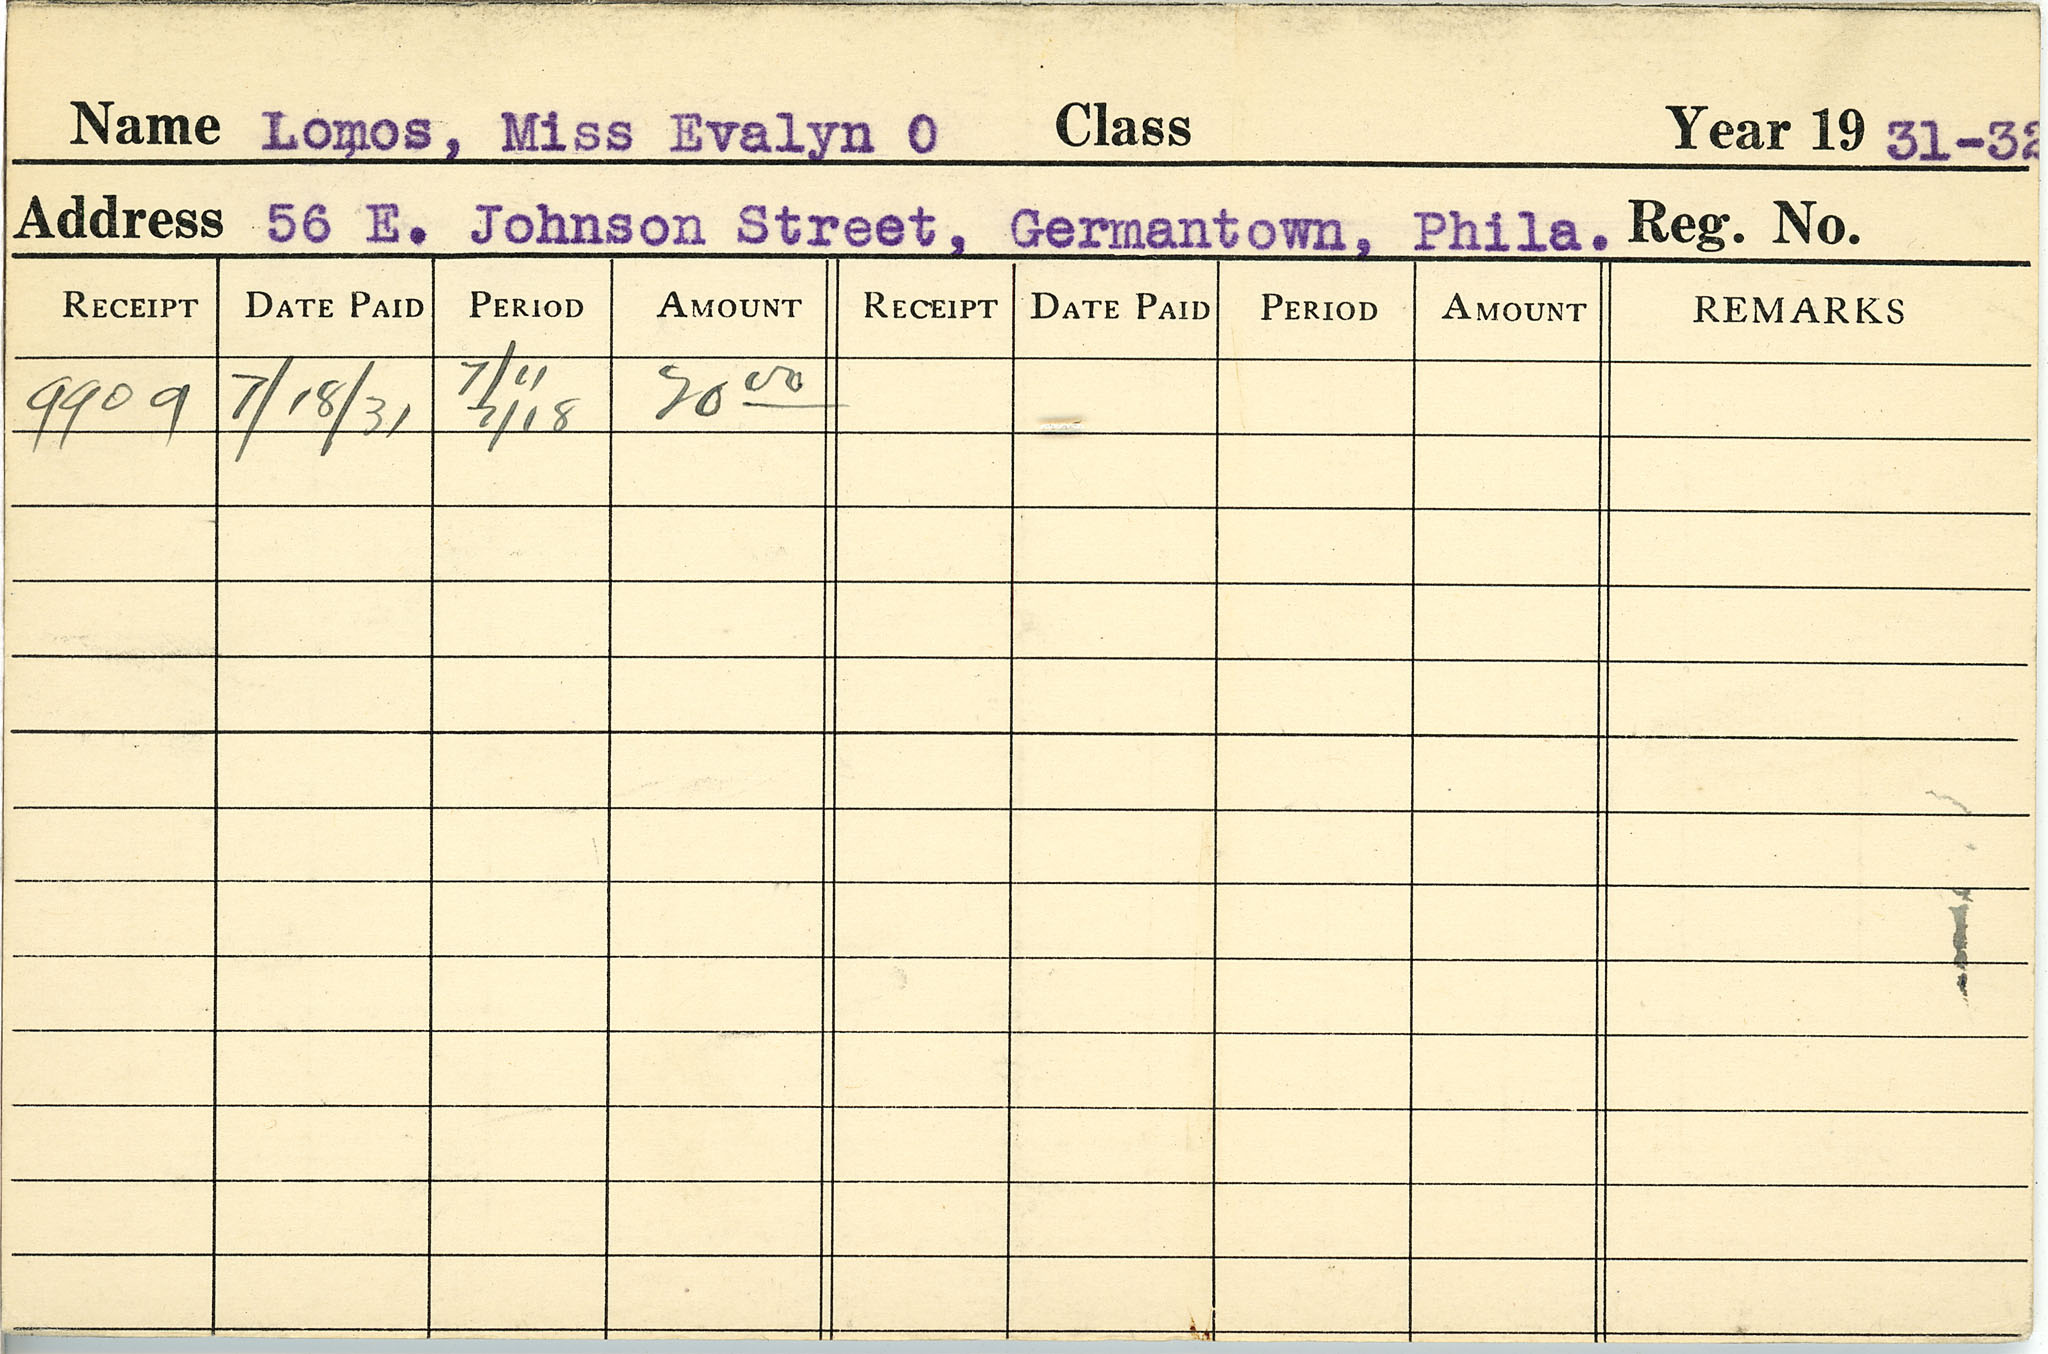 Name Lomos, Miss Evalyn O Class Year 19 31-32
Address 56 E. Johnson Street, Germantown, Phila. Reg. No.
RECEIPT DATE PAID PERIOD AMOUNT RECEIPT DATE PAID PERIOD AMOUNT REMARKS
9909 7/18/31 7/11 20 00
7/18